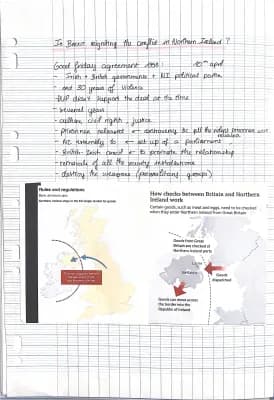 Is Brexit reigniting the conflict in Northern Ireland?
Good friday agreement 1998: 10th april
- Irish + British governments + NI political parties
- end 30 years of violence
- DUP didn't support the deal at the time
- several years
- culture, civil rights, justice
- prisoners released ← controversy bc all the
- NI assembly ← set up of a parliament
- British-Irish council ← to promote the relationship
- removals of all the security installations
- destroy the weapons (paramilitary groups)
Rules and regulations
How checks between Britain and Northern Ireland work
Certain goods, such as meat and eggs, need to be checked
when they enter Northern Ireland from Great Britain
Goods from Great
Britain pre-checked at
Northern Ireland ports
Larne
Belfast
Goods
dispatched
Goods can move across
the border into the
Republic of Ireland